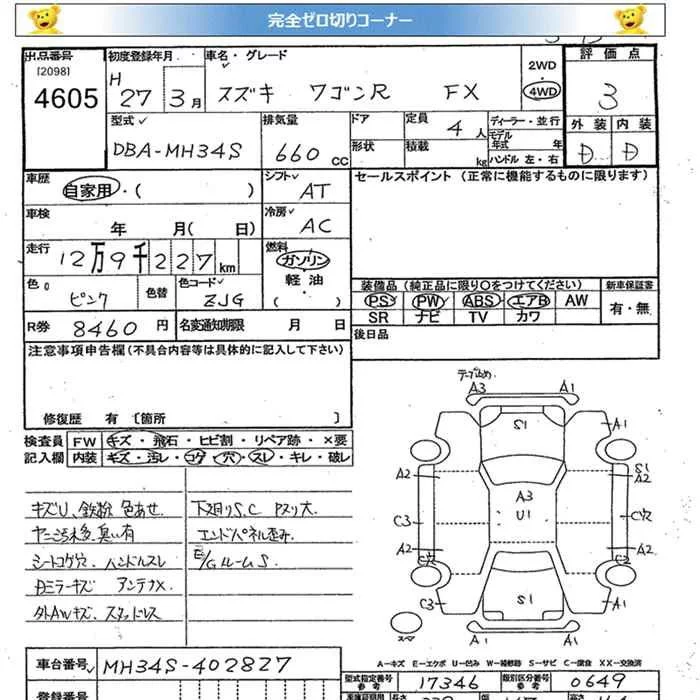 完全ゼロ切りコーナー
出品番号 初度登録年月 車名・グレード 2WD 評価点
[2098] H
4605 27 3月 スズキ ワゴンR FX 4WD 3
型式 排気量 ドア 定員 4人 ディーラー・並行 外装 内装
モデル年式 年
DBA-MH34S 660cc 形状 積載 kg ハンドル 左・右 D D
車歴 シフト セールスポイント (正常に機能するものに限ります)
自家用・( ) AT
車検 冷房
年 月( 日) AC
走行 燃料
12万9千227km ガソリン
軽油
色 色替 色コード ( ) 装備品 (純正品に限り○をつけてください) 新車保証書
ピンク ZJG PS PW ABS エアB AW 有・無
R券 8460円 名変通知期限 月 日 SR ナビ TV カワ
注意事項申告欄 (不具合内容等は具体的に記入して下さい) 後日品
修復歴 有 [箇所 ]
検査員 FW キズ・飛石・ヒビ割・リペア跡・×要
記入欄 内装 キズ・汚レ・コゲ・穴・スレ・キレ・破レ
キズU、鉄粉 色あせ 下廻りS,C Pヌリ大.
臭い有 エンドパネル歪み.
シートコゲ穴、ハンドルスレ E/GルームS
ミラーキズ アンテナX
外AWキズ、スタッドレス
テープ止め.
A3 A1
S1
A1
A2 S1
A2
A3
U1
C3 C穴
A2 A2
C2 C2
C3 S1 A1
A1 A1
スペア
A-キズ E-エクボ U-凹み W-補修跡 S-サビ C-腐食 XX-交換済
車台番号 MH34S-402827 型式指定番号 参考 17346 類別区分番号 参考 0649
登録番号